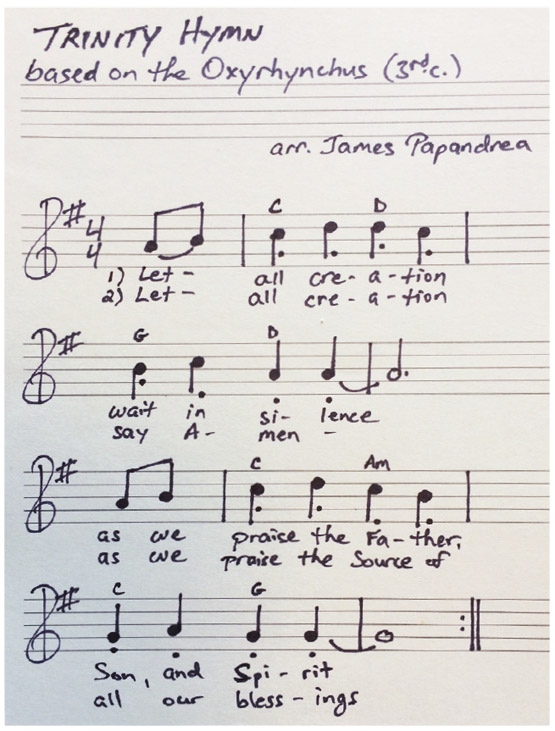 TRINITY HYMN
based on the Oxyrhynchus (3rd c.)
arr. James Papandrea
4
4
C D
1) Let- all cre- a-tion
2) Let- all cre- a-tion
G D
wait in si- lence
say A- men -
C Am
as we praise the Fa-ther,
as we praise the Source of
C G
Son, and Spi-rit
all our bless-ings